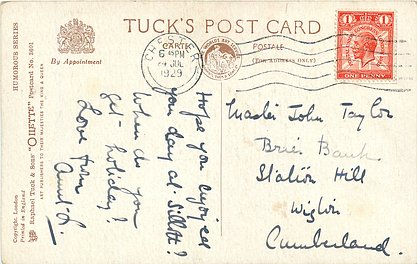 TUCK'S POST CARD
CARTE POSTALE
(FOR ADDRESS ONLY)
By Appointment
HUMOROUS SERIES
Raphael Tuck & Sons' "OILETTE" Postcard No. 3601
ART PUBLISHERS TO THEIR MAJESTIES THE KING & QUEEN
Copyright. London
Printed in England
CHESTER
6 PM
JUL
1929
POSTAL UNION CONGRESS
1
1
ONE PENNY
Hope you enjoyed
your day at Silloth?
When do you
get holiday?
Love from
Aunt L.
Master John Taylor
Brier Bank
Station Hill
Wigton
Cumberland.